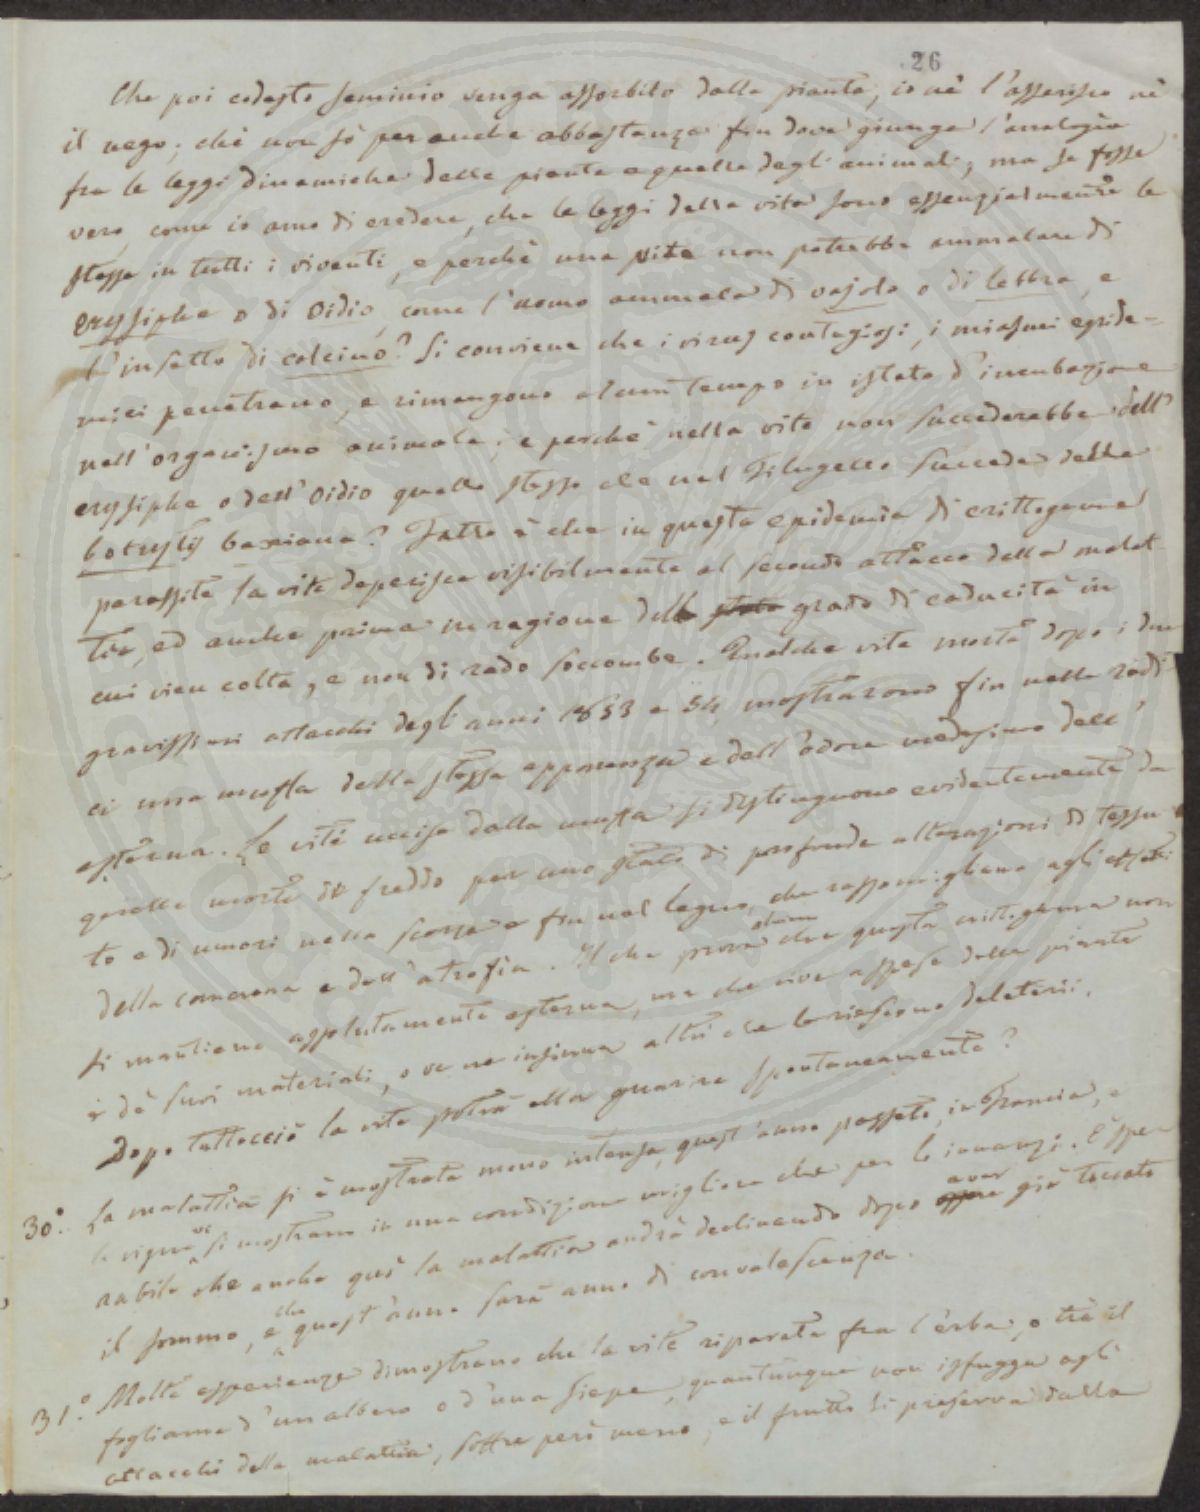 26
Che poi codesto seminio venga assorbito dalla pianta, io nè l'asserisco nè
il nego; chè non sò per anche abbastanza fin dove giunga l'analogia
fra le leggi dinamiche delle piante e quelle degli animali; ma se fosse
vero, come io amo di credere, che le leggi della vita sono essenzialmente le
stesse in tutti i viventi, e perchè una vite non potrebbe ammalare di
erysiphe o di oidio, come l'uomo ammala di vajolo o di lebbra, e
l'insetto di calcino? Si conviene che i virus contagiosi, i miasmi epide-
mici penetrano, e rimangono alcun tempo in istato d'incubazione
nell'organismo animale; e perchè nella vite non succederebbe dell'
erysiphe o dell'oidio quello stesso che nel filugello succede della
botrytis bassiana? Fatto è che in questa epidemia di crittogame
parassite la vite deperisce visibilmente al secondo attacco della malat-
tia, ed anche prima in ragione del grado di caducità in
cui vien colta, e non di rado soccombe. Qualche vite morta dopo i due
gravissimi attacchi degli anni 1853 e 54, mostrarono fin nelle radi-
ci una muffa della stessa apparenza e dell'odore medesimo dell'
esterna. Le viti uccise dalla muffa si distinguono evidentemente da
quelle morte di freddo per uno stato di profonde alterazioni di tessu-
to e di umori nella scorza e fin nel legno, che rassomigliano agli effetti
della cancrena e dell'atrofia. Il che prova che questa crittogama non
si mantiene assolutamente esterna, ma che vive a spese della pianta
e de' suoi materiali, o ve ne insinua altri che le riescono deleterii.
Dopo tuttocciò la vite potrà ella guarire spontaneamente?
30.° La malattia si è mostrata meno intensa, quest'anno passato, in Francia, e
le vigne vi si mostrano in una condizione migliore che per lo innanzi. È spe-
rabile che anche quì la malattia andrà declinando dopo aver già toccato
il sommo, e che quest'anno sarà anno di convalescenza.
31.° Molte esperienze dimostrano che la vite riparata fra l'erba, o trà il
fogliame d'un albero o d'una siepe, quantunque non isfugga agli
attacchi della malattia, soffre però meno, e il frutto si preserva dalla